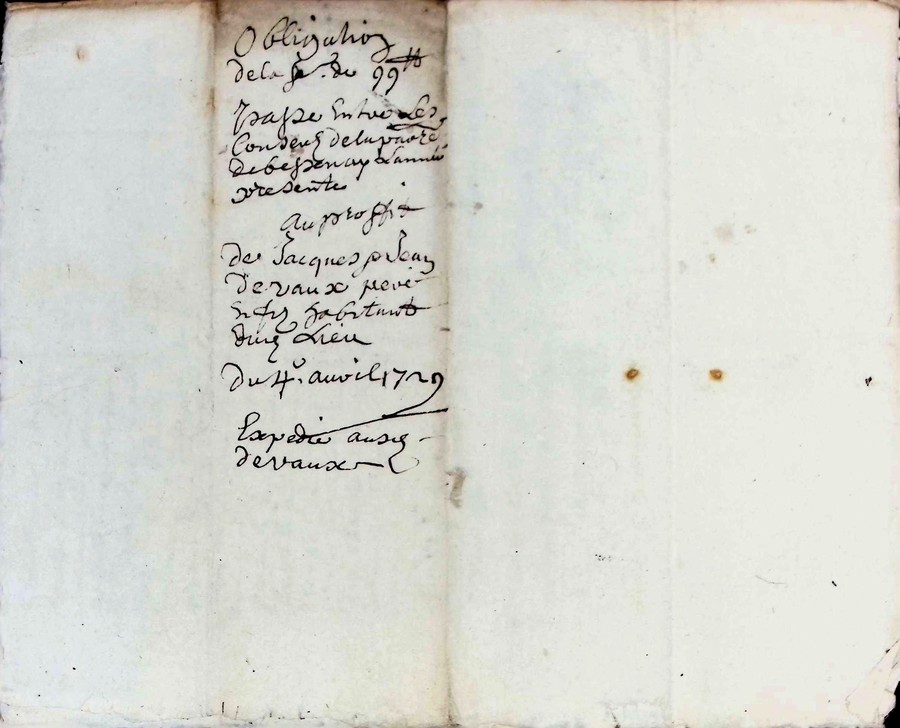 Obligation
de la so.e de 99 tt
passe Entre Les
Conseus de la parre
de bessenay Lannee
presente
au proffit
de Jacques & Jean
Devaux pere
& fis habitant
dud Lieu
Du 4e. avril 1729
Expedie ausd
devaux